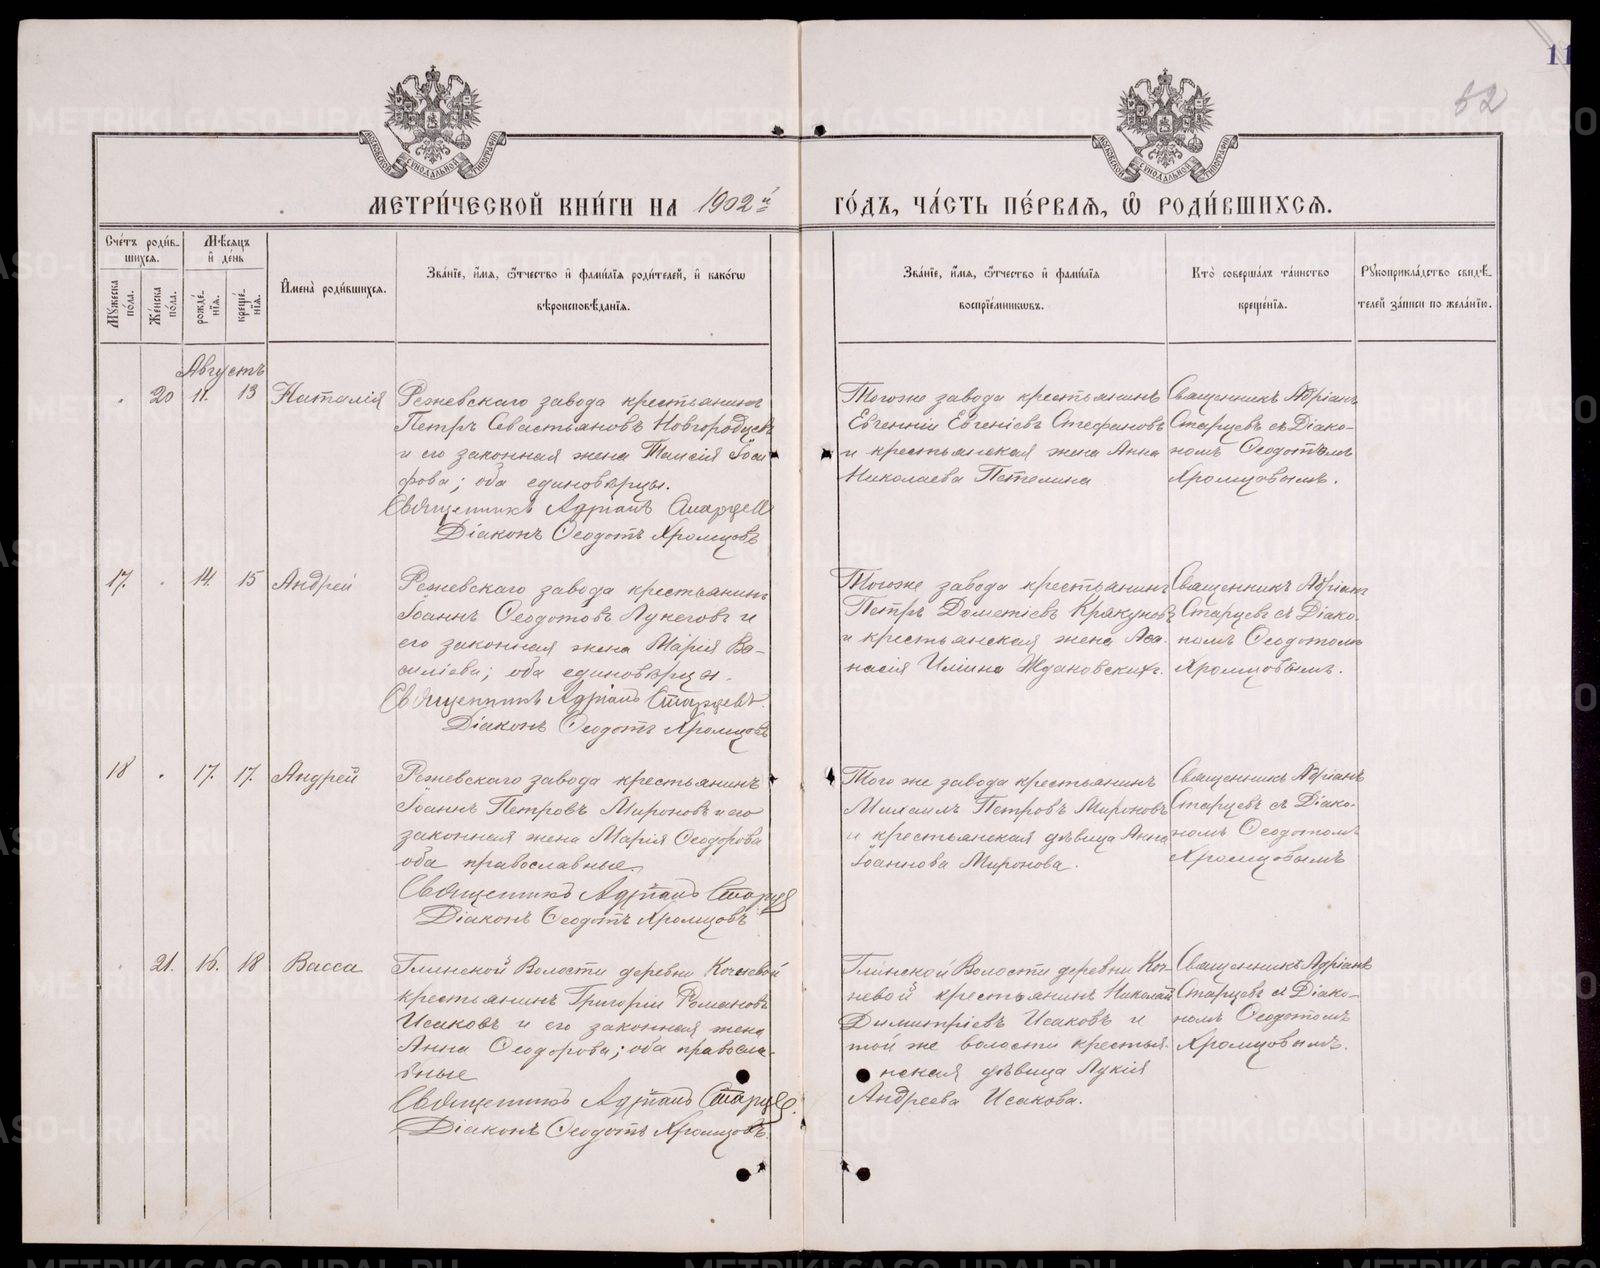 11
52
МОСКОВСКОЙ СѴНОДАЛЬНОЙ ТИПОГРАФІИ
МОСКОВСКОЙ СѴНОДАЛЬНОЙ ТИПОГРАФІИ
МЕТРИ́ЧЕСКОЙ КНИ́ГИ НА 1902й ГО́ДЪ, ЧА́СТЬ ПЕ́РВАЯ, Ѡ҆ РОДИ́ВШИХСѦ.
Сче́тъ роди́в-
шихсѧ.
Мꙋжеска по́ла.
Же́нска по́ла.
Мѣ́сяцъ
и҆ де́нь
рожде́-
нїѧ.
креще́-
нїѧ.
И҆мена̀ роди́вшихсѧ.
Зва́нїе, и҆́мѧ, ѻ҆́тчество и҆ фами́лїѧ роди́телей, и҆ како́гѡ
вѣроисповѣ́данїѧ.
Зва́нїе, и҆́мѧ, ѻ҆́тчество и҆ фами́лїѧ
воспрїе́мникѡвъ.
Кто̀ соверша́лъ та́инство
креще́нїѧ.
Рꙋкоприкла́дство свидѣ́-
телей за́писи по жела́нїю.
Августъ
20 11. 13 Наталія
Режевскаго завода крестьянинъ
Петръ Севастьяновъ Новгородцевъ
и его законная жена Таисія Іоси
фова; оба единовѣрцы.
Священникъ Адріанъ Старцевъ
Діаконъ Ѳеодотъ Хромцовъ
Тогоже завода крестьянинъ
Евгеній Евгеніевъ Стефановъ
и крестьянская жена Анна
Николаева Петелина
Священникъ Адріанъ
Старцевъ съ Діако-
номъ Ѳеодотомъ
Хромцовымъ.
17. 14. 15 Андрей
Режевскаго завода крестьянинъ
Іоаннъ Ѳеодотовъ Лукеговъ и
его законная жена Марія Ва-
силіева; оба единовѣрцы.
Священникъ Адріанъ Старцевъ
Діаконъ Ѳеодотъ Хромцовъ
Тогоже завода крестьянинъ
Петръ Дометіевъ Кракуновъ
и крестьянская жена Аѳа
насія Иліина Ждановскихъ.
Священникъ Адріанъ
Старцевъ съ Діако.
номъ Ѳеодотомъ
Хромцовымъ.
18 17. 17. Андрей
Режевскаго завода крестьянинъ
Іоаннъ Петровъ Мироновъ и его
законная жена Марія Ѳеодорова
оба православные.
Священникъ Адріанъ Старцев
Діаконъ Ѳеодотъ Хромцовъ
Того же завода крестьянинъ
Михаилъ Петровъ Мироновъ
и крестьянская дѣвица Анна
Іоаннова Миронова.
Священникъ Адріанъ
Старцевъ съ Діако-
номъ Ѳеодотомъ
Хромцовымъ
21. 16. 18 Васса
Глинской Волости деревни Кочневой
крестьянинъ Григорій Романовъ
Исаковъ и его законная жена
Анна Ѳеодорова; оба правосла-
вные
Священникъ Адріанъ Старцев.
Діаконъ Ѳеодотъ Хромцовъ.
Глинской Волости деревни Коч-
невой крестьянинъ Николай
Димитріевъ Исаковъ и
той же волости крестья-
нская дѣвица Лукія
Андреева Исакова.
Священникъ Адріанъ
Старцевъ съ Діако-
номъ Ѳеодотомъ
Хромцовымъ.
METRIKI.GASO-URAL.RU